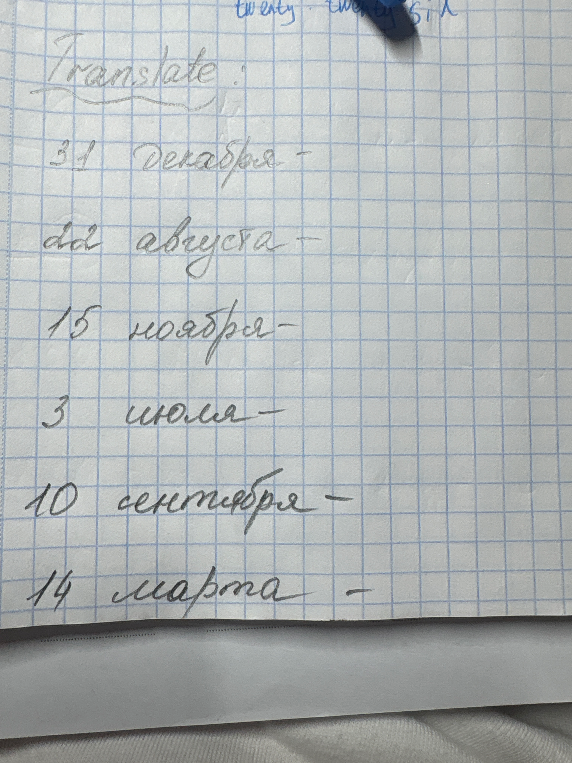 twenty. twenty six
Translate:
31 декабря -
22 августа -
15 ноября -
3 июля -
10 сентября -
14 марта -